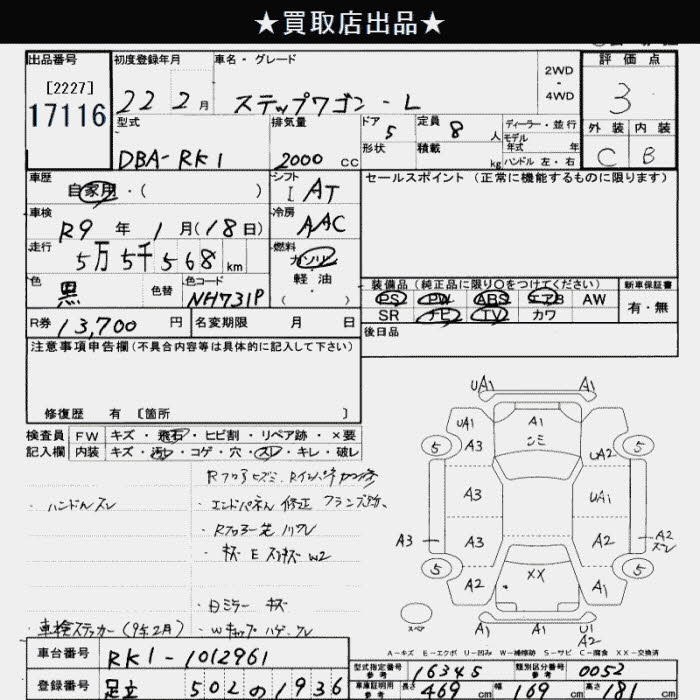 ★買取店出品★
出品番号
[2227]
17116
初度登録年月
22 2月
車名・グレード
ステップワゴン - L
2WD
・
4WD
評価点
3
外装 内装
C B
型式
DBA-RK1
排気量
2000 cc
ドア
5
定員
8 人
形状
積載
kg
ディーラー・並行
モデル
年式 年
ハンドル 左・右
車歴
自家用・( )
シフト
I AT
セールスポイント (正常に機能するものに限ります)
車検
R9 年 1月(18日)
冷房
AAC
走行
5万5千568 km
燃料
ガソリン
軽油
( )
色
黒
色替
色コード
NH731P
装備品 (純正品に限り○をつけてください)
新車保証書
PS PW ABS エアB AW
SR ナビ TV カワ
有・無
R券 13,700 円
名変期限 月 日
後日品
注意事項申告欄 (不具合内容等は具体的に記入して下さい)
修復歴 有 [箇所 ]
検査員
記入欄
FW キズ・飛石・ヒビ割・リペア跡・×要
内装 キズ・汚レ・コゲ・穴・スレ・キレ・破レ
・ハンドルスレ
・エンドパネル 修正
・キズ E
W2
・日ミラー キズ
・車検ステッカー (9年2月)
・Wキャップ ハゲ、スレ
UA1 A1
UA1 A1 UA2
5 A3 ンミ 5
A3 UA1
A3 A3 A2 A2
スレ
5 A2 XX A1 5
スペア
A1 A1 U1
A2
A-キズ E-エクボ U-凹み W-補修跡 S-サビ C-腐食 XX-交換済
車台番号 RK1-1012961
登録番号 足立 502 の 1936
型式指定番号
参考
16345
類別区分番号
参考
0052
車庫証明用
参考
長さ 469 cm 幅 169 cm 高さ 181 cm